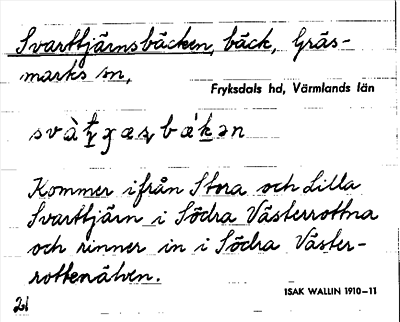 Svarttjärnsbäcken, bäck, Gräs-
marks sn,
Fryksdals hd, Värmlands län
Kommer ifrån Stora och Lilla
Svarttjärn i Södra Västerrottna
och rinner in i Södra Väster-
rottenälven.
ISAK WALLIN 1910–11